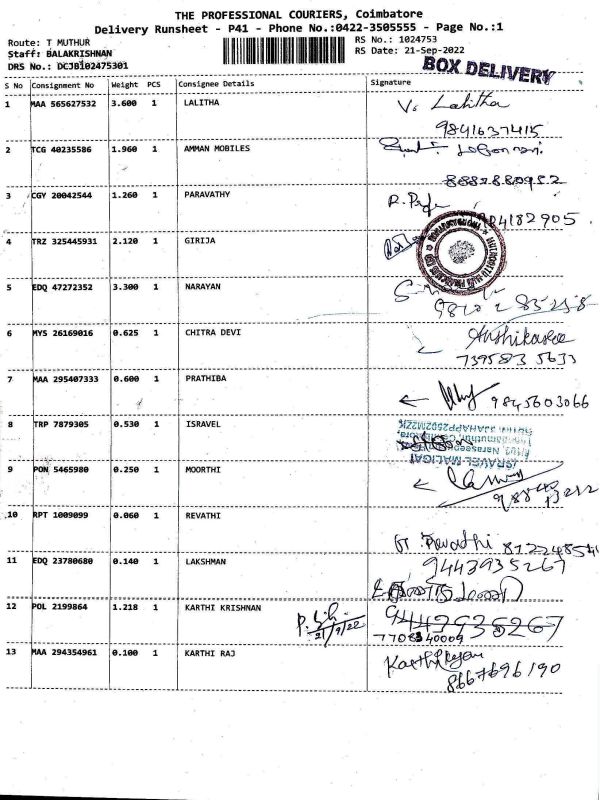 THE PROFESSIONAL COURIERS, Coimbatore
Delivery Runsheet - P41 - Phone No.:0422-3505555 - Page No.:1
Route: T MUTHUR
RS No.: 1024753
Staff: BALAKRISHNAN
RS Date: 21-Sep-2022
DRS No.: DCJB102475301
BOX DELIVERY
S No Consignment No Weight PCS Consignee Details Signature
1 MAA 565627532 3.600 1 LALITHA V. Lalitha
9841637415
2 TCG 40235586 1.960 1 AMMAN MOBILES
8882880952
3 CGY 20042544 1.260 1 PARAVATHY
4182905
4 TRZ 325445931 2.120 1 GIRIJA
5 EDQ 47272352 3.300 1 NARAYAN
6 MYS 26169016 0.625 1 CHITRA DEVI
739583 5633
7 MAA 295407333 0.600 1 PRATHIBA
9845603066
8 TRP 7879305 0.530 1 ISRAVEL
ISRAVEL MALIGAI
9 PON 5465980 0.250 1 MOORTHI
10 RPT 1009099 0.060 1 REVATHI
Revathi 81224854
11 EDQ 23780680 0.140 1 LAKSHMAN 9443935267
12 POL 2199864 1.218 1 KARTHI KRISHNAN 9442935267
21/9/22
7708340009
13 MAA 294354961 0.100 1 KARTHI RAJ
8667696190